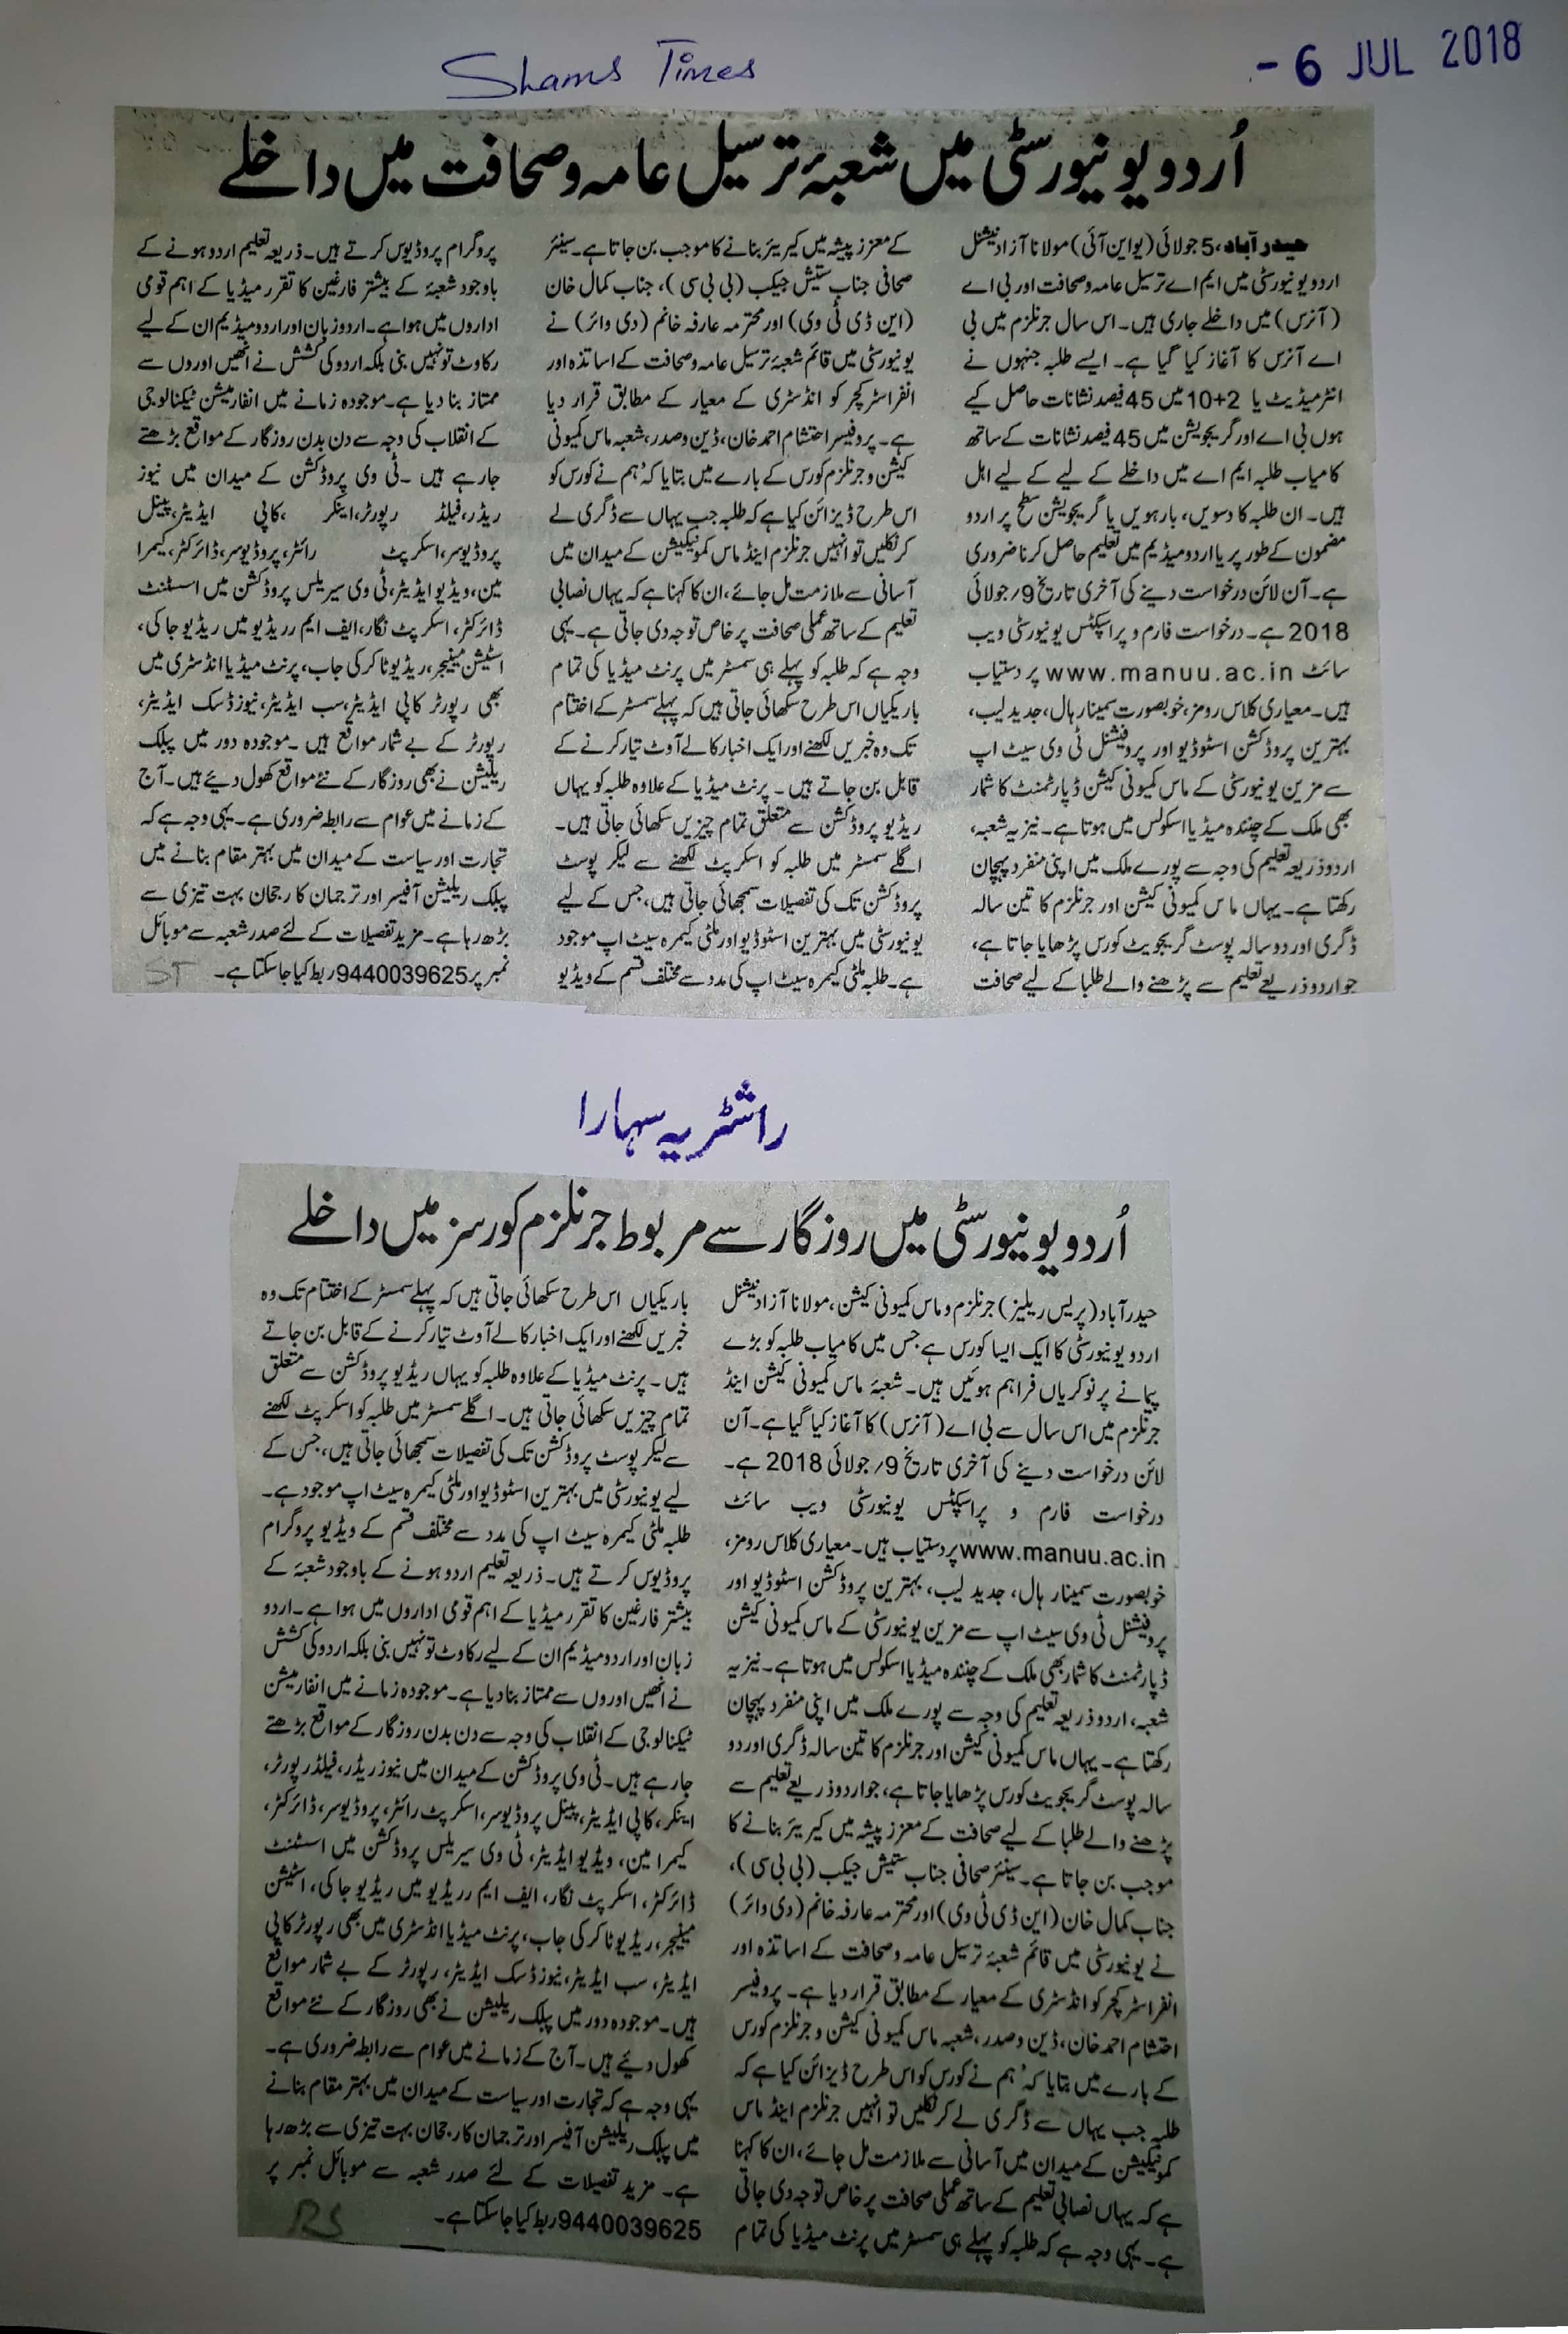 Shams Times
- 6 JUL 2018
اُردو یونیورسٹی میں شعبۂ ترسیل عامہ و صحافت میں داخلے
حیدرآباد، 5 جولائی (یو این آئی) مولانا آزاد نیشنل
اردو یونیورسٹی میں ایم اے ترسیل عامہ و صحافت اور بی اے
(آنرس) میں داخلے جاری ہیں۔ اس سال جرنلزم میں بی
اے آنرس کا آغاز کیا گیا ہے۔ ایسے طلبہ جنہوں نے
انٹرمیڈیٹ یا 2+10 میں 45 فیصد نشانات حاصل کیے
ہوں بی اے اور گریجویشن میں 45 فیصد نشانات کے ساتھ
کامیاب طلبہ ایم اے میں داخلے کے لیے کے لیے اہل
ہیں۔ ان طلبہ کا دسویں، بارہویں یا گریجویشن سطح پر اردو
مضمون کے طور پر یا اردو میڈیم میں تعلیم حاصل کرنا ضروری
ہے۔ آن لائن درخواست دینے کی آخری تاریخ 9؍ جولائی
2018 ہے۔ درخواست فارم و پراسپکٹس یونیورسٹی ویب
سائٹ www.manuu.ac.in پر دستیاب
ہیں۔ معیاری کلاس رومز، خوبصورت سمینار ہال، جدید لیب،
بہترین پروڈکشن اسٹوڈیو اور پروفیشنل ٹی وی سیٹ اپ
سے مزین یونیورسٹی کے ماس کمیونی کیشن ڈپارٹمنٹ کا شمار
بھی ملک کے چنندہ میڈیا اسکولس میں ہوتا ہے۔ نیز یہ شعبہ،
اردو ذریعہ تعلیم کی وجہ سے پورے ملک میں اپنی منفرد پہچان
رکھتا ہے۔ یہاں ماس کمیونی کیشن اور جرنلزم کا تین سالہ
ڈگری اور دو سالہ پوسٹ گریجویٹ کورس پڑھایا جاتا ہے،
جو اردو ذریعے تعلیم سے پڑھنے والے طلبا کے لیے صحافت
کے معزز پیشہ میں کیریئر بنانے کا موجب بن جاتا ہے۔ سینئر
صحافی جناب ستیش جیکب (بی بی سی)، جناب کمال خان
(این ڈی ٹی وی) اور محترمہ عارفہ خانم (دی وائر) نے
یونیورسٹی میں قائم شعبۂ ترسیل عامہ و صحافت کے اساتذہ اور
انفراسٹرکچر کو انڈسٹری کے معیار کے مطابق قرار دیا
ہے۔ پروفیسر احتشام احمد خان، ڈین و صدر، شعبہ ماس کمیونی
کیشن و جرنلزم کورس کے بارے میں بتایا کہ ’ہم نے کورس کو
اس طرح ڈیزائن کیا ہے کہ طلبہ جب یہاں سے ڈگری لے
کر نکلیں تو انہیں جرنلزم اینڈ ماس کمونیکیشن کے میدان میں
آسانی سے ملازمت مل جائے، ان کا کہنا ہے کہ یہاں نصابی
تعلیم کے ساتھ عملی صحافت پر خاص توجہ دی جاتی ہے۔ یہی
وجہ ہے کہ طلبہ کو پہلے ہی سمسٹر میں پرنٹ میڈیا کی تمام
باریکیاں اس طرح سکھائی جاتی ہیں کہ پہلے سمسٹر کے اختتام
تک وہ خبریں لکھنے اور ایک اخبار کا لے آوٹ تیار کرنے کے
قابل بن جاتے ہیں۔ پرنٹ میڈیا کے علاوہ طلبہ کو یہاں
ریڈیو پروڈکشن سے متعلق تمام چیزیں سکھائی جاتی ہیں۔
اگلے سمسٹر میں طلبہ کو اسکرپٹ لکھنے سے لیکر پوسٹ
پروڈکشن تک کی تفصیلات سمجھائی جاتی ہیں، جس کے لیے
یونیورسٹی میں بہترین اسٹوڈیو اور ملٹی کیمرہ سیٹ اپ موجود
ہے۔ طلبہ ملٹی کیمرہ سیٹ اپ کی مدد سے مختلف قسم کے ویڈیو
پروگرام پروڈیوس کرتے ہیں۔ ذریعہ تعلیم اردو ہونے کے
باوجود شعبۂ کے بیشتر فارغین کا تقرر میڈیا کے اہم قومی
اداروں میں ہوا ہے۔ اردو زبان اور اردو میڈیم ان کے لیے
رکاوٹ تو نہیں بنی بلکہ اردو کی کشش نے انھیں اوروں سے
ممتاز بنا دیا ہے۔ موجودہ زمانے میں انفارمیشن ٹیکنالوجی
کے انقلاب کی وجہ سے دن بدن روزگار کے مواقع بڑھتے
جا رہے ہیں۔ ٹی وی پروڈکشن کے میدان میں نیوز
ریڈر، فیلڈ رپورٹر، اینکر ، کاپی ایڈیٹر، پینل
پروڈیوسر، اسکرپٹ رائٹر، پروڈیوسر، ڈائرکٹر، کیمرا
مین، ویڈیو ایڈیٹر، ٹی وی سیریلس پروڈکشن میں اسسٹنٹ
ڈائرکٹر، اسکرپٹ نگار، ایف ایم رریڈیو میں ریڈیو جاکی،
اسٹیشن مینیجر، ریڈیو ٹاکر کی جاب، پرنٹ میڈیا انڈسٹری میں
بھی رپورٹر کاپی ایڈیٹر، سب ایڈیٹر، نیوز ڈسک ایڈیٹر،
رپورٹر کے بے شمار مواقع ہیں۔ موجودہ دور میں پبلک
ریلیشن نے بھی روزگار کے نئے مواقع کھول دیئے ہیں۔ آج
کے زمانے میں عوام سے رابطہ ضروری ہے۔ یہی وجہ ہے کہ
تجارت اور سیاست کے میدان میں بہتر مقام بنانے میں
پبلک ریلیشن آفیسر اور ترجمان کا رجحان بہت تیزی سے
بڑھ رہا ہے۔ مزید تفصیلات کے لئے صدر شعبہ سے موبائل
نمبر پر 9440039625 ربط کیا جا سکتا ہے۔
ST
راشٹریہ سہارا
اُردو یونیورسٹی میں روزگار سے مربوط جرنلزم کورسز میں داخلے
حیدرآباد (پریس ریلیز) جرنلزم و ماس کمیونی کیشن، مولانا آزاد نیشنل
اردو یونیورسٹی کا ایک ایسا کورس ہے جس میں کامیاب طلبہ کو بڑے
پیمانے پر نوکریاں فراہم ہوئیں ہیں۔ شعبۂ ماس کمیونی کیشن اینڈ
جرنلزم میں اس سال سے بی اے (آنرس) کا آغاز کیا گیا ہے۔ آن
لائن درخواست دینے کی آخری تاریخ 9؍ جولائی 2018 ہے۔
درخواست فارم و پراسپکٹس یونیورسٹی ویب سائٹ
www.manuu.ac.in پر دستیاب ہیں۔ معیاری کلاس رومز،
خوبصورت سمینار ہال، جدید لیب، بہترین پروڈکشن اسٹوڈیو اور
پروفیشنل ٹی وی سیٹ اپ سے مزین یونیورسٹی کے ماس کمیونی کیشن
ڈپارٹمنٹ کا شمار بھی ملک کے چنندہ میڈیا اسکولس میں ہوتا ہے۔ نیز یہ
شعبہ، اردو ذریعہ تعلیم کی وجہ سے پورے ملک میں اپنی منفرد پہچان
رکھتا ہے۔ یہاں ماس کمیونی کیشن اور جرنلزم کا تین سالہ ڈگری اور دو
سالہ پوسٹ گریجویٹ کورس پڑھایا جاتا ہے، جو اردو ذریعے تعلیم سے
پڑھنے والے طلبا کے لیے صحافت کے معزز پیشہ میں کیریئر بنانے کا
موجب بن جاتا ہے۔ سینئر صحافی جناب ستیش جیکب (بی بی سی)،
جناب کمال خان (این ڈی ٹی وی) اور محترمہ عارفہ خانم (دی وائر)
نے یونیورسٹی میں قائم شعبۂ ترسیل عامہ و صحافت کے اساتذہ اور
انفراسٹرکچر کو انڈسٹری کے معیار کے مطابق قرار دیا ہے۔ پروفیسر
احتشام احمد خان، ڈین و صدر، شعبہ ماس کمیونی کیشن و جرنلزم کورس
کے بارے میں بتایا کہ ’ہم نے کورس کو اس طرح ڈیزائن کیا ہے کہ
طلبہ جب یہاں سے ڈگری لے کر نکلیں تو انہیں جرنلزم اینڈ ماس
کمونیکیشن کے میدان میں آسانی سے ملازمت مل جائے، ان کا کہنا
ہے کہ یہاں نصابی تعلیم کے ساتھ عملی صحافت پر خاص توجہ دی جاتی
ہے۔ یہی وجہ ہے کہ طلبہ کو پہلے ہی سمسٹر میں پرنٹ میڈیا کی تمام
باریکیاں اس طرح سکھائی جاتی ہیں کہ پہلے سمسٹر کے اختتام تک وہ
خبریں لکھنے اور ایک اخبار کا لے آوٹ تیار کرنے کے قابل بن جاتے
ہیں۔ پرنٹ میڈیا کے علاوہ طلبہ کو یہاں ریڈیو پروڈکشن سے متعلق
تمام چیزیں سکھائی جاتی ہیں۔ اگلے سمسٹر میں طلبہ کو اسکرپٹ لکھنے
سے لیکر پوسٹ پروڈکشن تک کی تفصیلات سمجھائی جاتی ہیں، جس کے
لیے یونیورسٹی میں بہترین اسٹوڈیو اور ملٹی کیمرہ سیٹ اپ موجود ہے۔
طلبہ ملٹی کیمرہ سیٹ اپ کی مدد سے مختلف قسم کے ویڈیو پروگرام
پروڈیوس کرتے ہیں۔ ذریعہ تعلیم اردو ہونے کے باوجود شعبۂ کے
بیشتر فارغین کا تقرر میڈیا کے اہم قومی اداروں میں ہوا ہے۔ اردو
زبان اور اردو میڈیم ان کے لیے رکاوٹ تو نہیں بنی بلکہ اردو کی کشش
نے انھیں اوروں سے ممتاز بنا دیا ہے۔ موجودہ زمانے میں انفارمیشن
ٹیکنالوجی کے انقلاب کی وجہ سے دن بدن روزگار کے مواقع بڑھتے
جا رہے ہیں۔ ٹی وی پروڈکشن کے میدان میں نیوز ریڈر، فیلڈ رپورٹر،
اینکر، کاپی ایڈیٹر، پینل پروڈیوسر، اسکرپٹ رائٹر، پروڈیوسر، ڈائرکٹر،
کیمرا مین، ویڈیو ایڈیٹر، ٹی وی سیریلس پروڈکشن میں اسسٹنٹ
ڈائرکٹر، اسکرپٹ نگار، ایف ایم رریڈیو میں ریڈیو جاکی، اسٹیشن
مینیجر، ریڈیو ٹاکر کی جاب، پرنٹ میڈیا انڈسٹری میں بھی رپورٹر کاپی
ایڈیٹر، سب ایڈیٹر، نیوز ڈسک ایڈیٹر، رپورٹر کے بے شمار مواقع
ہیں۔ موجودہ دور میں پبلک ریلیشن نے بھی روزگار کے نئے مواقع
کھول دیئے ہیں۔ آج کے زمانے میں عوام سے رابطہ ضروری ہے۔
یہی وجہ ہے کہ تجارت اور سیاست کے میدان میں بہتر مقام بنانے
میں پبلک ریلیشن آفیسر اور ترجمان کا رجحان بہت تیزی سے بڑھ رہا
ہے۔ مزید تفصیلات کے لئے صدر شعبہ سے موبائل نمبر پر
9440039625 ربط کیا جا سکتا ہے۔
RS